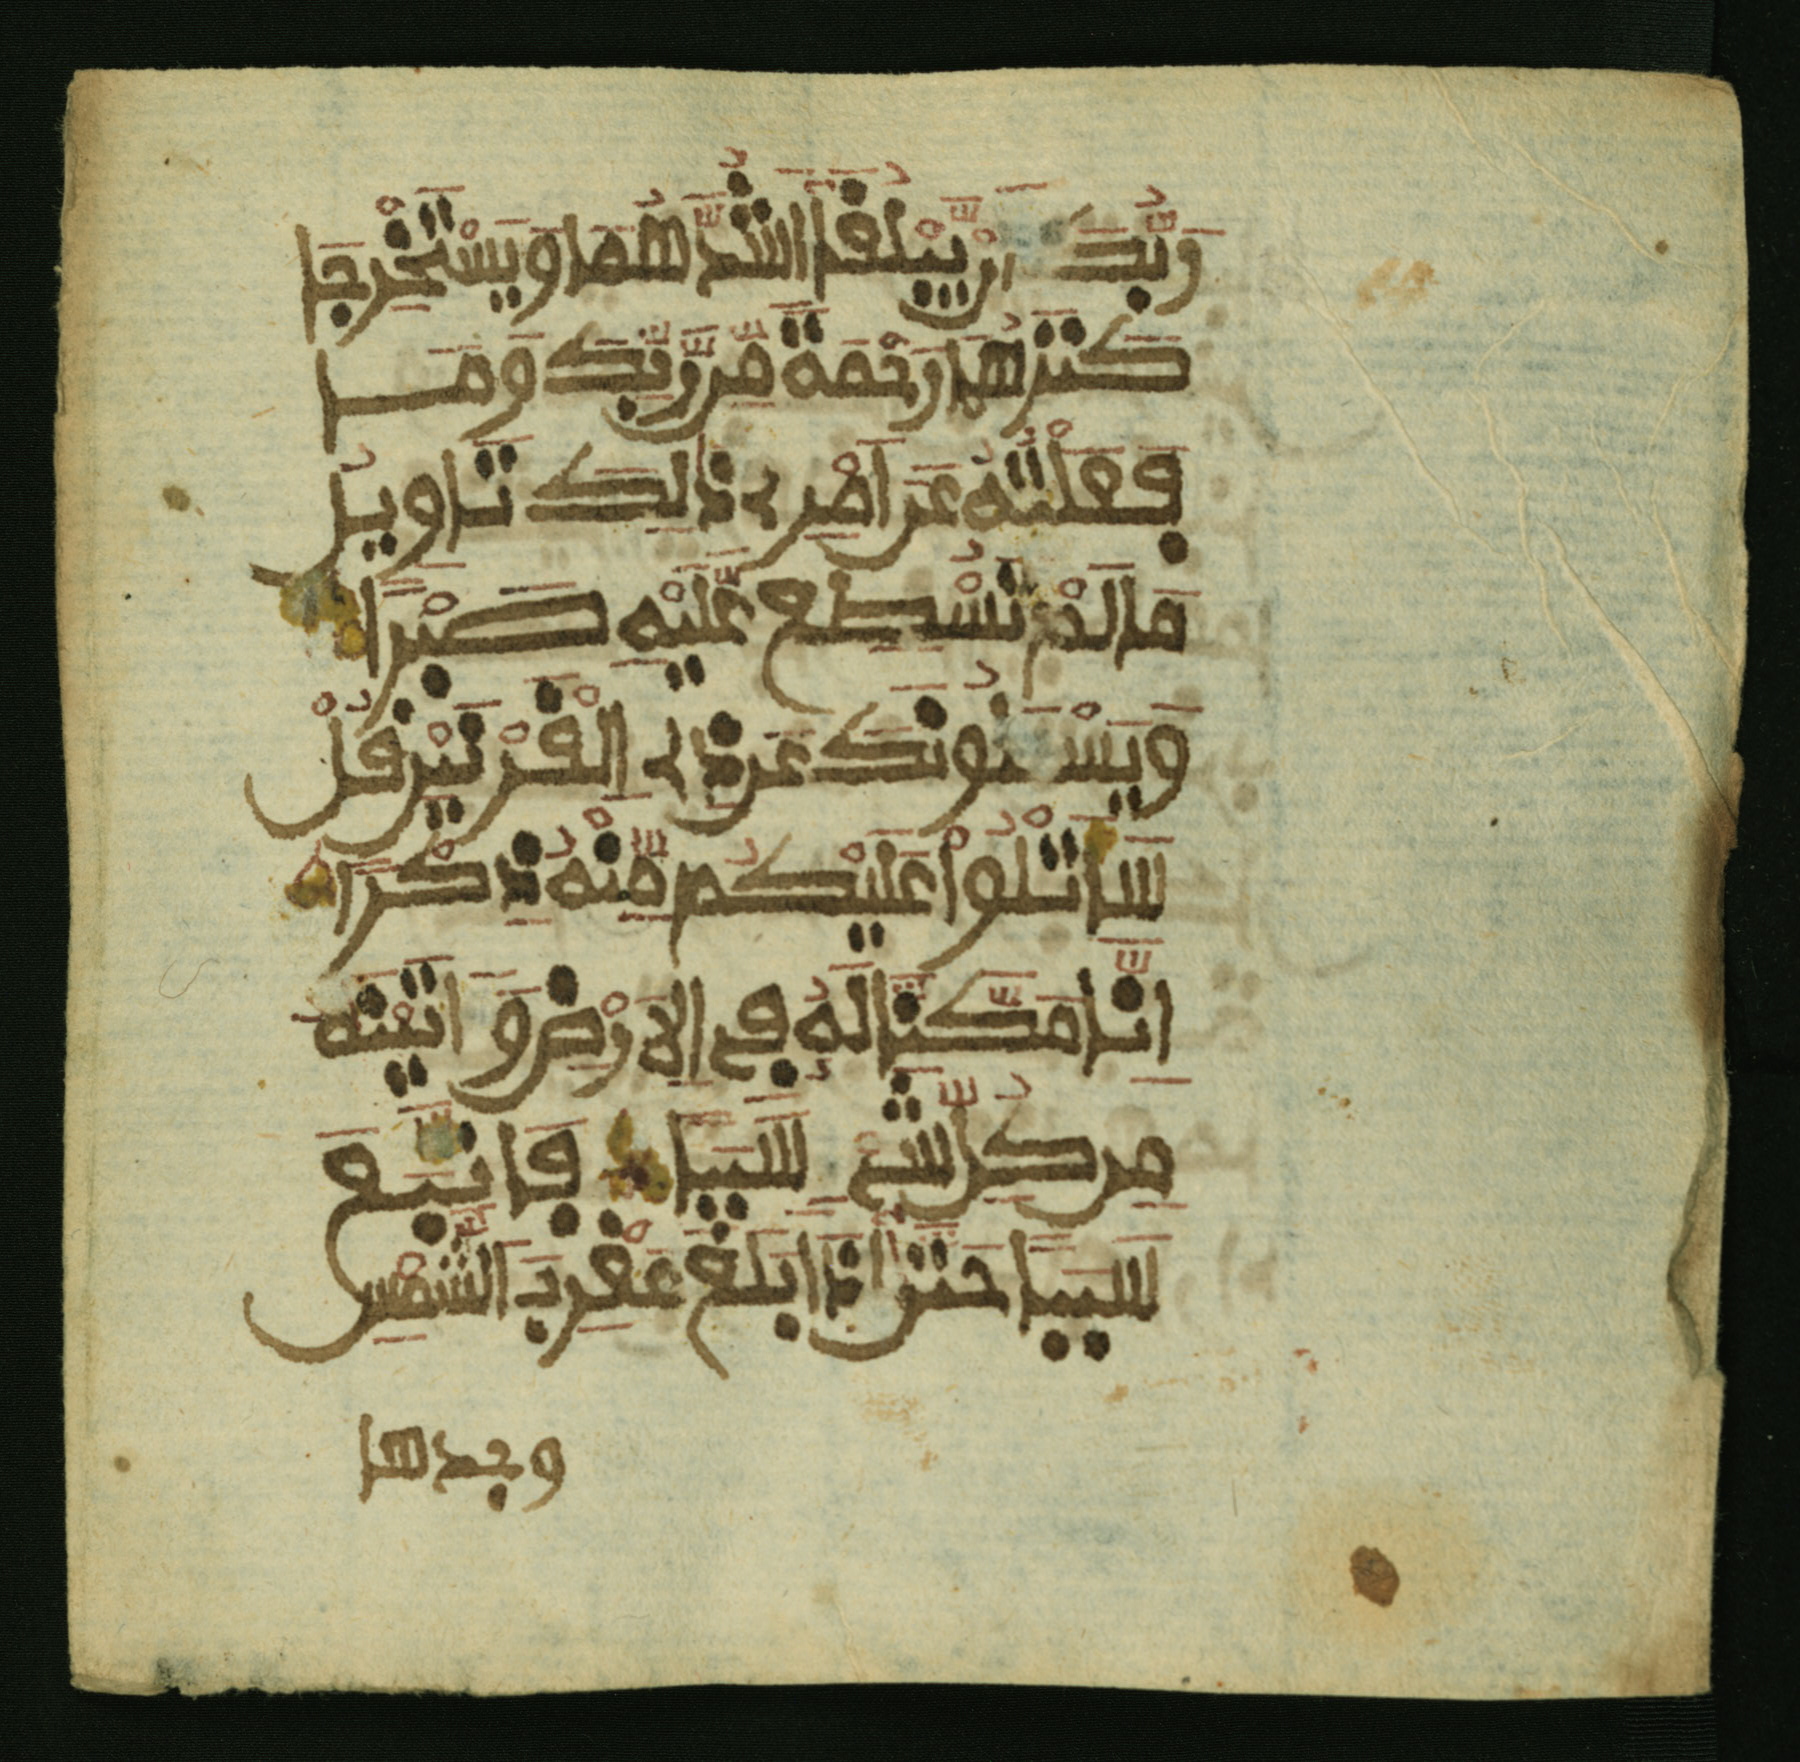 رَبُّكَ أَنْ يَّبْلُغَا أَشُدَّهُمَا وَيَسْتَخْرِجَا
كَنزَهُمَا رَحْمَةً مِّن رَّبِّكَ وَمَا
فَعَلْتُهُ عَنَ اَمْرِي ذَالِكَ تَاوِيلُ
مَا لَمْ تَسْطِع عَّلَيْهِ صَبْرًا
وَيَسْـَٔلُونَكَ عَن ذِي الْقَرْنَيْنِ قُلْ
سَأَتْلُواْ عَلَيْكُم مِّنْهُ ذِكْرًا
إِنَّا مَكَّنَّا لَهُ فِي الَارْضِ وَءَاتَيْنَهُ
مِن كُلِّ شَيْءٍ سَبَبًا فَاتَّبَعَ
سَبَبًا حَتَّىٰ إِذَا بَلَغَ مَغْرِبَ الشَّمْسِ
وجدها